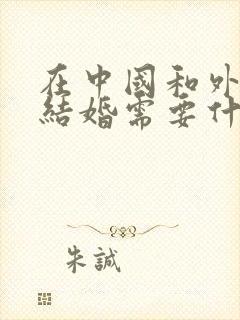 在中國和外
結婚需要什
朱誠